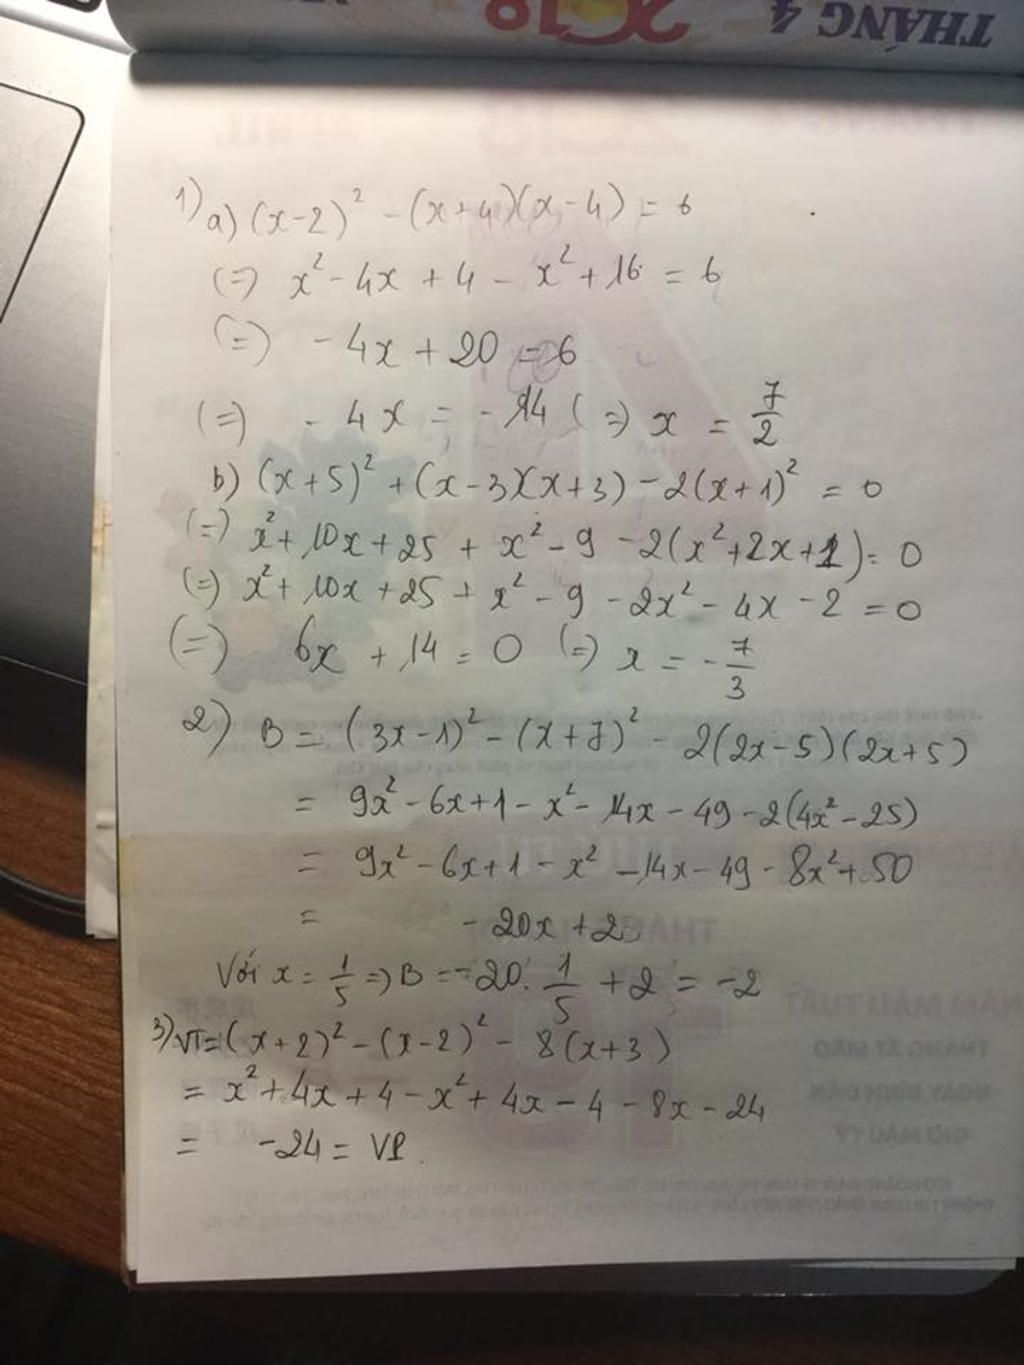 THÁNG 4 2018
1) a) (x-2)² - (x+4)(x-4) = 6
(=) x² - 4x + 4 - x² + 16 = 6
(=) - 4x + 20 = 6
(=) - 4x = - 14 (=) x = 7/2
b) (x+5)² + (x-3)(x+3) - 2(x+1)² = 0
(=) x² + 10x + 25 + x² - 9 - 2(x² + 2x + 1) = 0
(=) x² + 10x + 25 + x² - 9 - 2x² - 4x - 2 = 0
(=) 6x + 14 = 0 (=) x = - 7/3
2) B = (3x-1)² - (x+7)² - 2(2x-5)(2x+5)
= 9x² - 6x + 1 - x² - 14x - 49 - 2(4x² - 25)
= 9x² - 6x + 1 - x² - 14x - 49 - 8x² + 50
= - 20x + 2
Với x = 1/5 => B = -20. 1/5 + 2 = -2
3) VT = (x+2)² - (x-2)² - 8(x+3)
= x² + 4x + 4 - x² + 4x - 4 - 8x - 24
= -24 = VP.